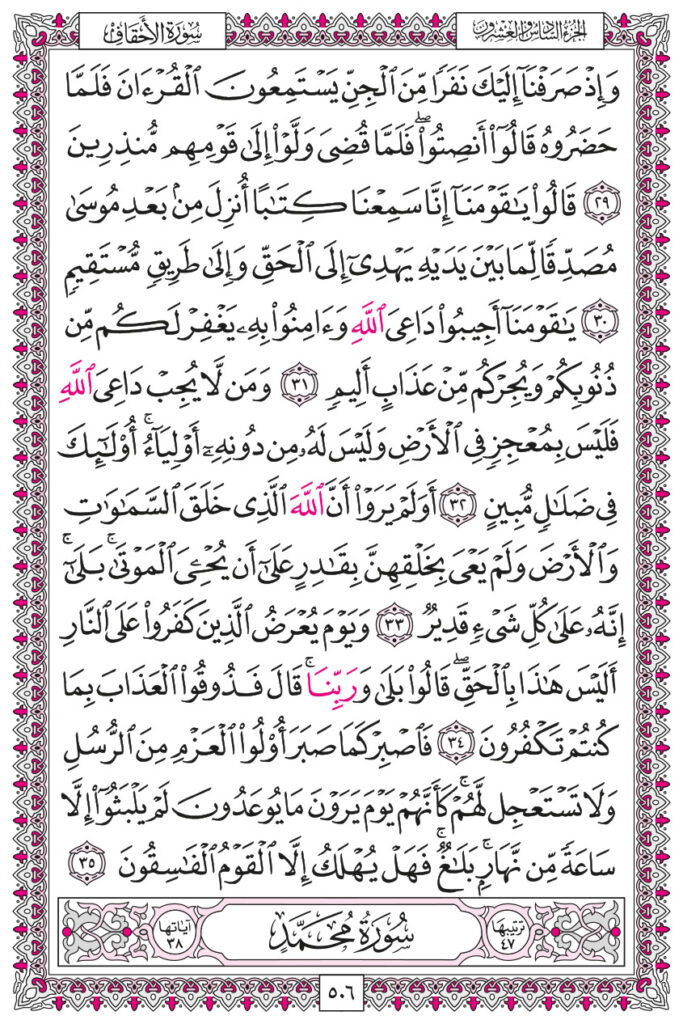 الجزء السادس والعشرون
سورة الأحقاف
وَإِذْ صَرَفْنَآ إِلَيْكَ نَفَرًا مِّنَ ٱلْجِنِّ يَسْتَمِعُونَ ٱلْقُرْءَانَ فَلَمَّا
حَضَرُوهُ قَالُوٓا۟ أَنصِتُوا۟ ۖ فَلَمَّا قُضِىَ وَلَّوْا۟ إِلَىٰ قَوْمِهِم مُّنذِرِينَ
٢٩ قَالُوا۟ يَٰقَوْمَنَآ إِنَّا سَمِعْنَا كِتَٰبًا أُنزِلَ مِنۢ بَعْدِ مُوسَىٰ
مُصَدِّقًا لِّمَا بَيْنَ يَدَيْهِ يَهْدِىٓ إِلَى ٱلْحَقِّ وَإِلَىٰ طَرِيقٍ مُّسْتَقِيمٍ
٣٠ يَٰقَوْمَنَآ أَجِيبُوا۟ دَاعِىَ ٱللَّهِ وَءَامِنُوا۟ بِهِۦ يَغْفِرْ لَكُم مِّن
ذُنُوبِكُمْ وَيُجِرْكُم مِّنْ عَذَابٍ أَلِيمٍ ٣١ وَمَن لَّا يُجِبْ دَاعِىَ ٱللَّهِ
فَلَيْسَ بِمُعْجِزٍ فِى ٱلْأَرْضِ وَلَيْسَ لَهُۥ مِن دُونِهِۦٓ أَوْلِيَآءُ ۚ أُو۟لَٰٓئِكَ
فِى ضَلَٰلٍ مُّبِينٍ ٣٢ أَوَلَمْ يَرَوْا۟ أَنَّ ٱللَّهَ ٱلَّذِى خَلَقَ ٱلسَّمَٰوَٰتِ
وَٱلْأَرْضَ وَلَمْ يَعْىَ بِخَلْقِهِنَّ بِقَٰدِرٍ عَلَىٰٓ أَن يُحْـِۧىَ ٱلْمَوْتَىٰ ۚ بَلَىٰٓ ۚ
إِنَّهُۥ عَلَىٰ كُلِّ شَىْءٍ قَدِيرٌ ٣٣ وَيَوْمَ يُعْرَضُ ٱلَّذِينَ كَفَرُوا۟ عَلَى ٱلنَّارِ
أَلَيْسَ هَٰذَا بِٱلْحَقِّ ۖ قَالُوا۟ بَلَىٰ وَرَبِّنَا ۚ قَالَ فَذُوقُوا۟ ٱلْعَذَابَ بِمَا
كُنتُمْ تَكْفُرُونَ ٣٤ فَٱصْبِرْ كَمَا صَبَرَ أُو۟لُوا۟ ٱلْعَزْمِ مِنَ ٱلرُّسُلِ
وَلَا تَسْتَعْجِل لَّهُمْ ۚ كَأَنَّهُمْ يَوْمَ يَرَوْنَ مَا يُوعَدُونَ لَمْ يَلْبَثُوٓا۟ إِلَّا
سَاعَةً مِّن نَّهَارٍۭ ۚ بَلَٰغٌ ۚ فَهَلْ يُهْلَكُ إِلَّا ٱلْقَوْمُ ٱلْفَٰسِقُونَ ٣٥
ترتيبها ٤٧ سُورَةُ مُحَمَّدٍ آياتها ٣٨
٥٠٦